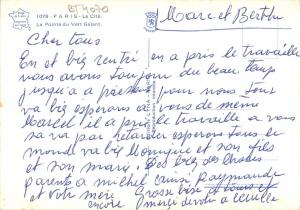 BT 4070
1078 - PARIS - La Cité.
La Pointe du Vert Galant.
Marc et Berthe
Cher tous
En et bis rentré en a pris le travaille
nous avons toujour du beau temps
jusqu'a a présent pour nous tous
va bis esperons a vous de meme
Marcel til a pris le travaille a vous
sa va par retarder esperons tous le
monde va bis Monique et son fils
et son mari. Des bises des
parents a michel aussi Raymonde
et votre mère Grosse bise
encore merci devoir a